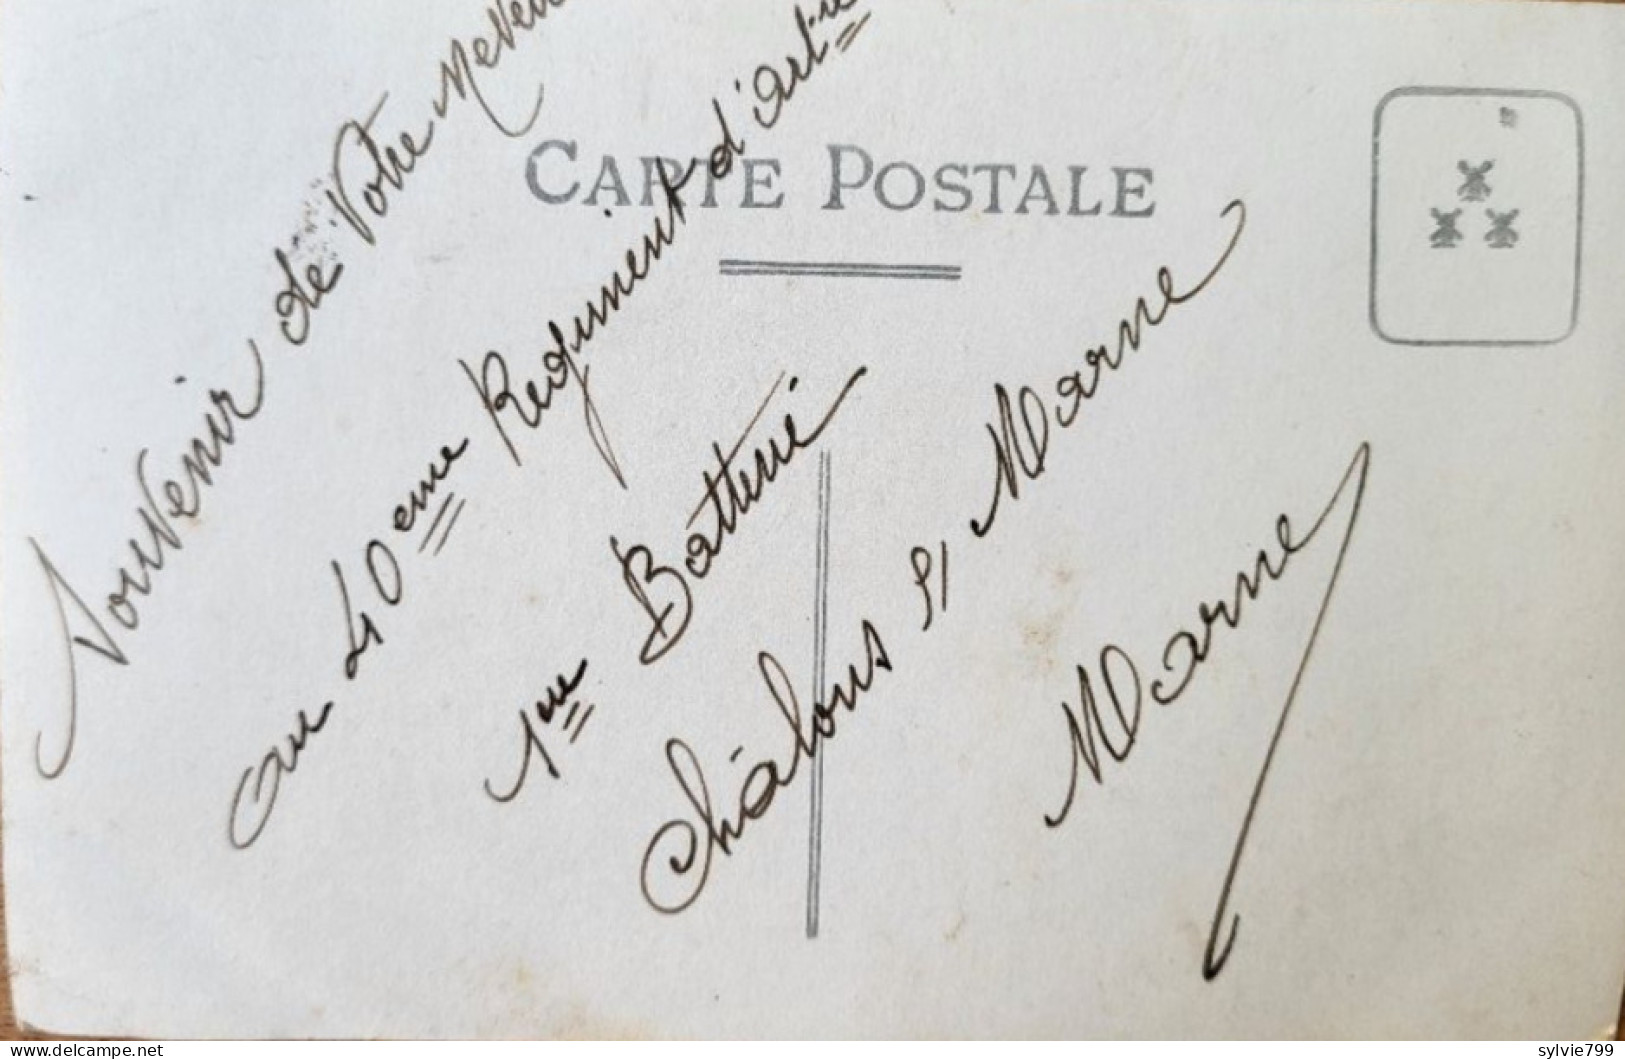 CARTE POSTALE
Souvenir de Votre Neveu
au 40eme Regiment d'Artie
1ere Batterie
Châlons s/ Marne
Marne
www.delcampe.net
sylvie799